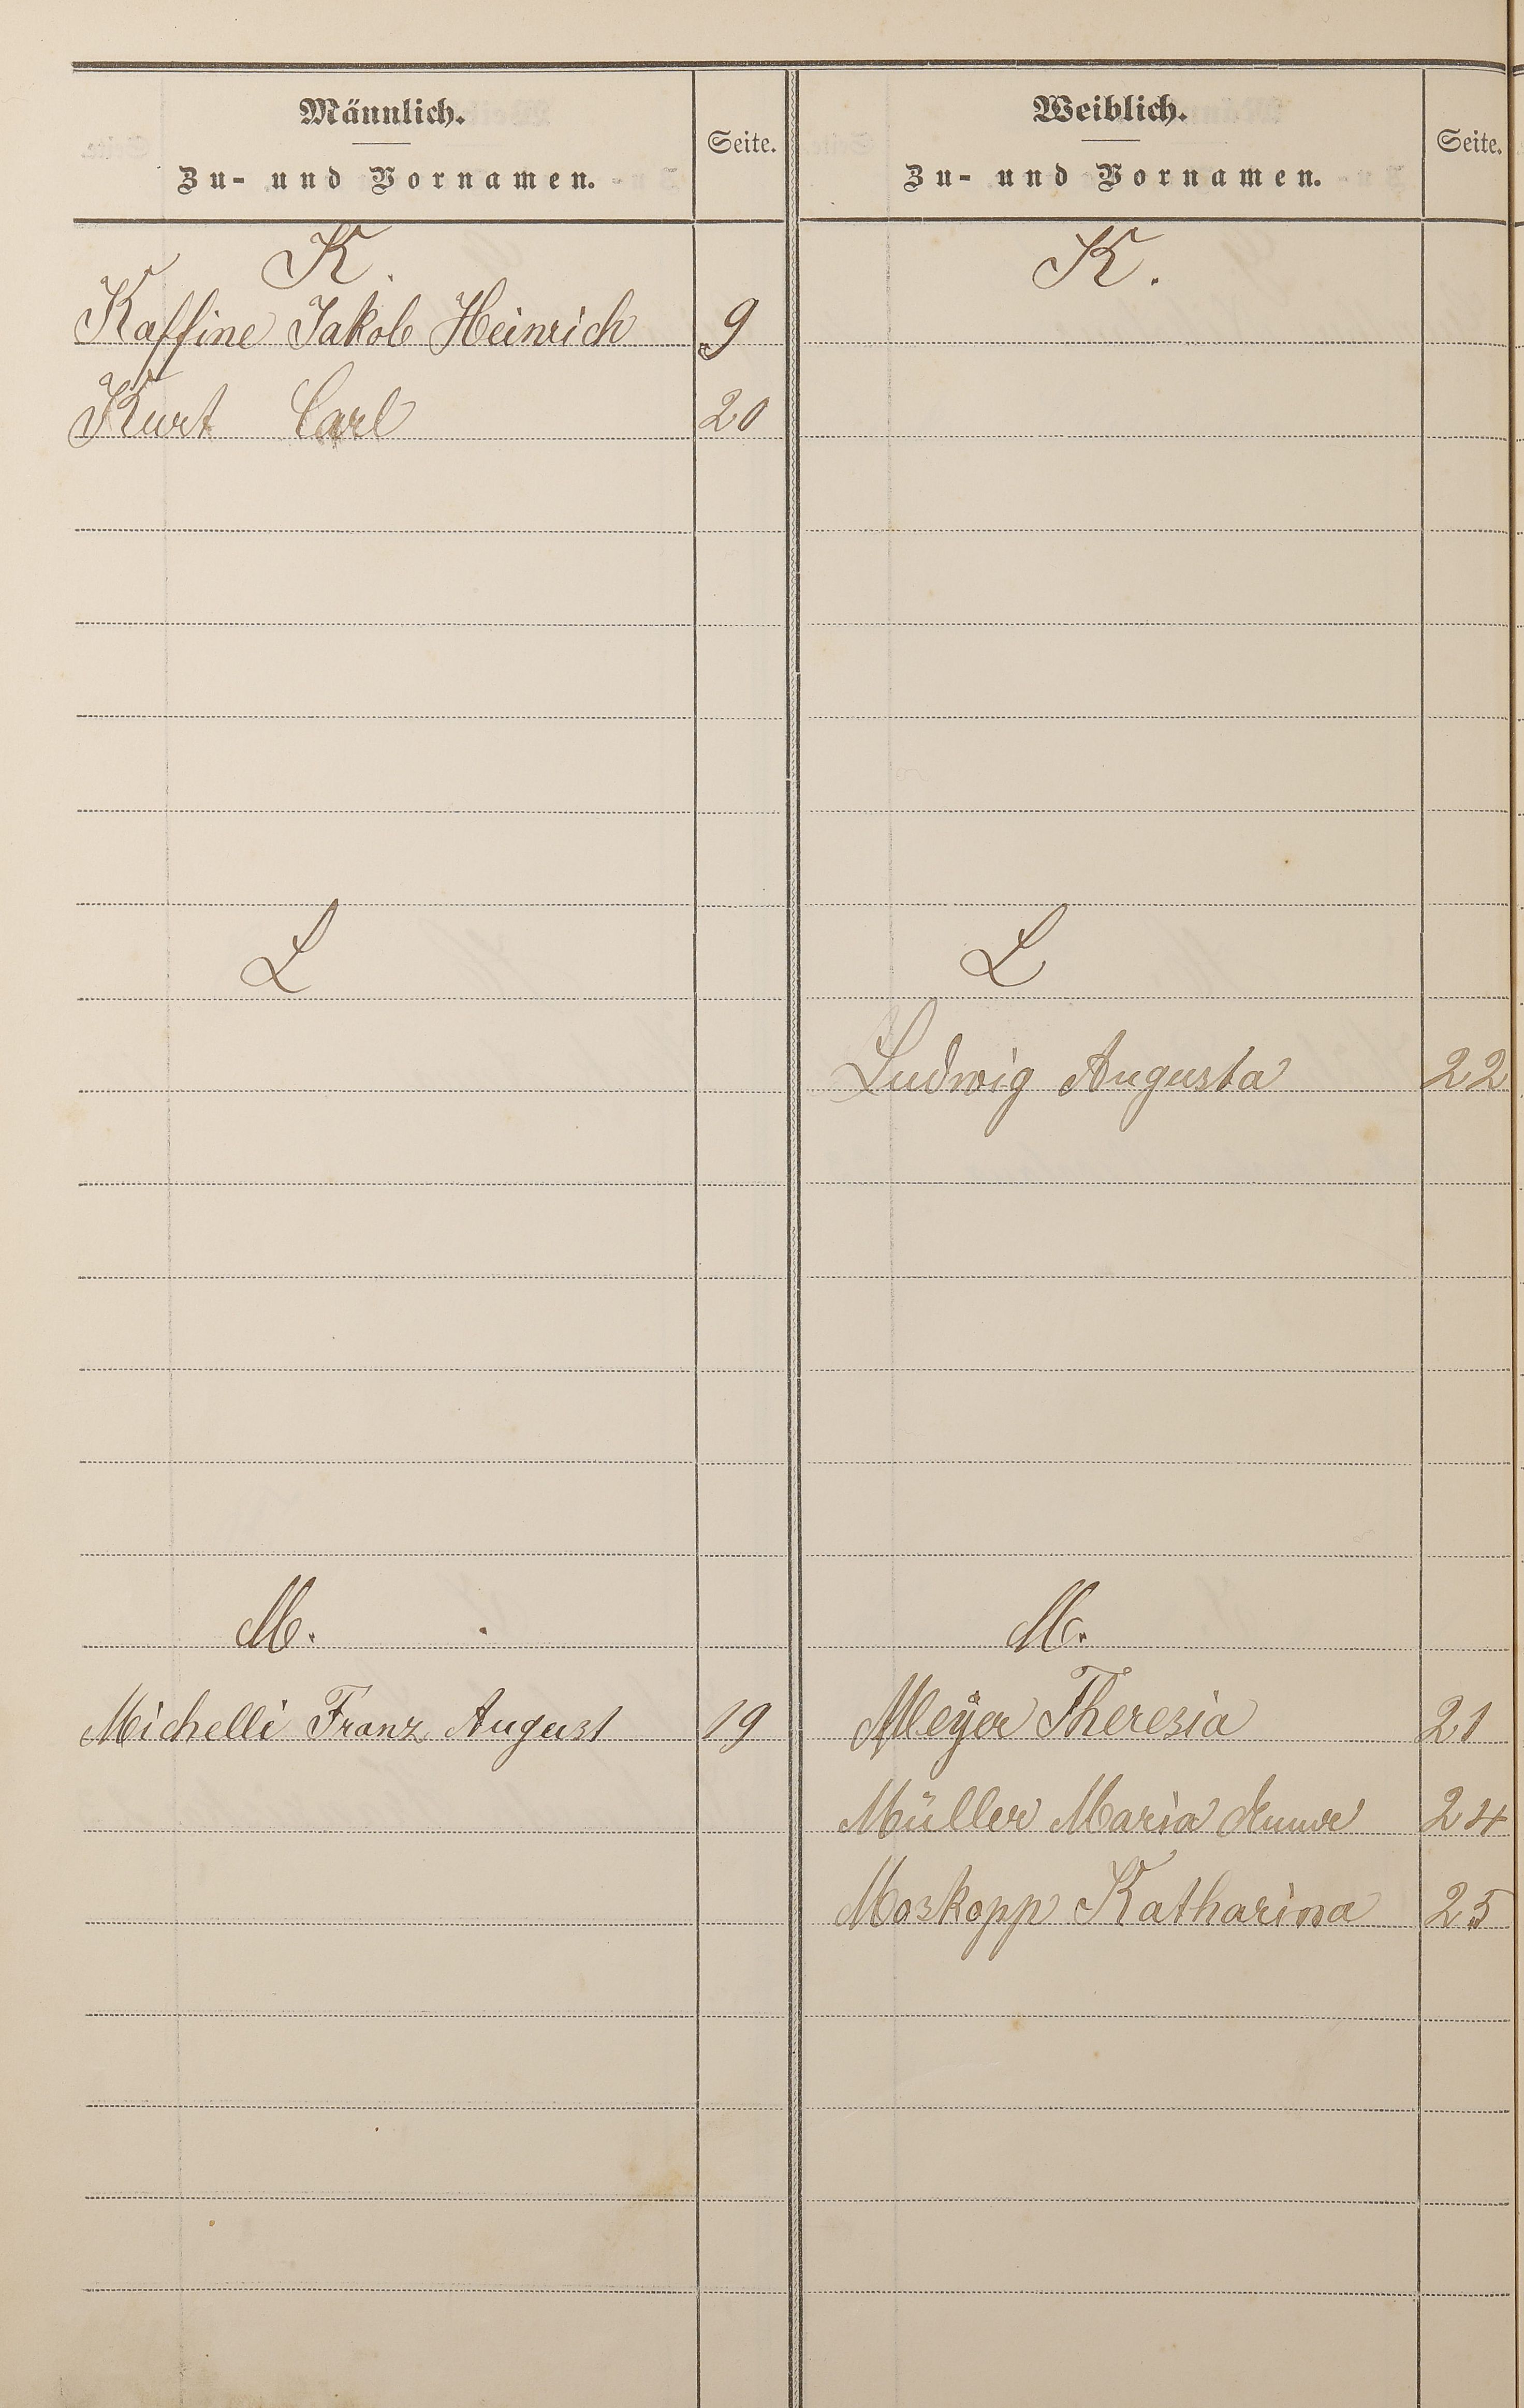 Männlich.
Zu- und Vornamen.
Seite.
Weiblich.
Zu- und Vornamen.
Seite.
K.
K.
Kaffine Jakob Heinrich 9
Kurt Carl 20
L
L
Ludwig Augusta 22
M.
M.
Michelli Franz August 19
Meyer Theresia 21
Müller Maria 24
Moskopp Katharina 25